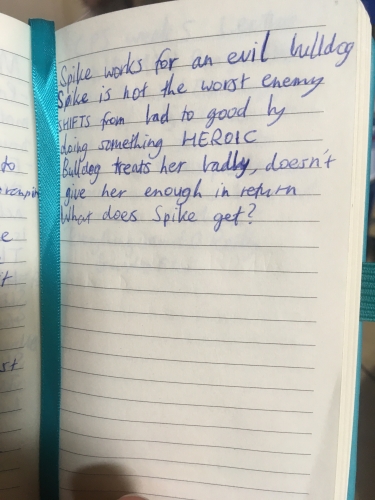 Spike works for an evil bulldog
Spike is not the worst enemy
SHIFTS from bad to good by
doing something HEROIC
Bulldog treats her badly, doesn't
give her enough in return
What does Spike get?
to
e
it